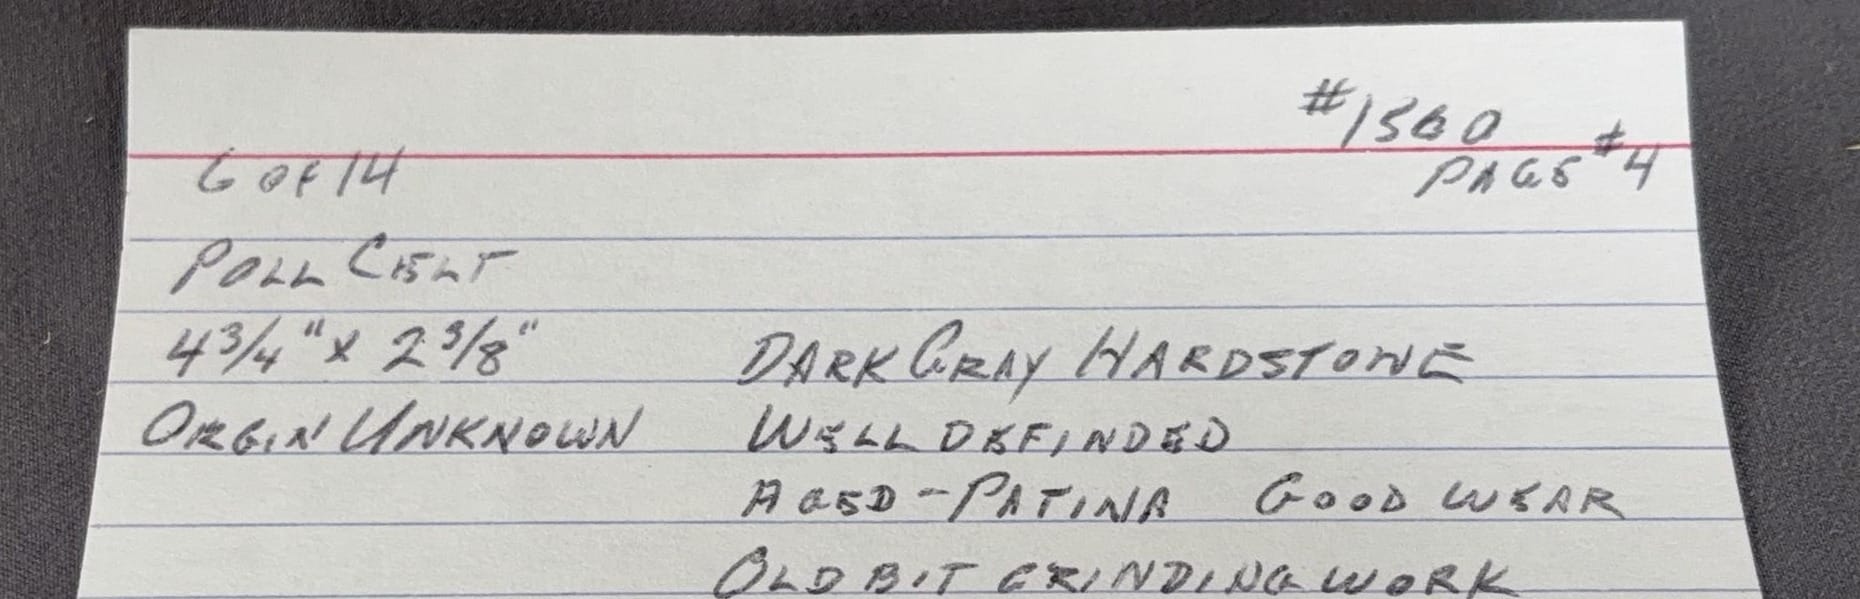 #1560
PAGE #4
6 OF 14
POLL CELT
4 3/4" x 2 3/8"
DARK GRAY HARDSTONE
ORGIN UNKNOWN
WELL DEFINDED
AGED - PATINA GOOD WEAR
OLD BIT GRINDING WORK